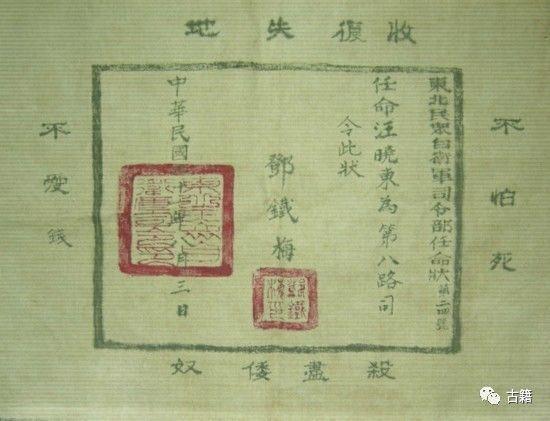 收復失地
不怕死
東北民衆自衛軍司令部任命狀第二四號
任命汪曉東為第八路司
令此狀
鄧鐵梅
鄧鐵梅印
中華民國十年月三日
不愛錢
殺盡倭奴
古籍